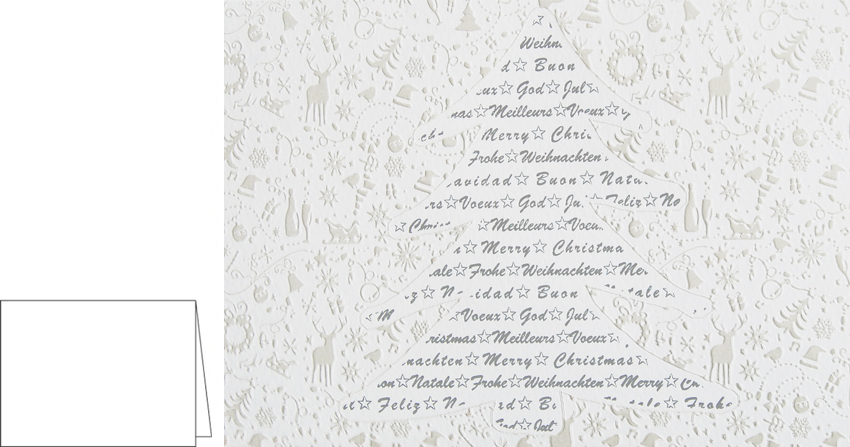 Weihn
d☆ Buon
ux☆ God☆ Jul☆
nas☆Meilleurs☆Voeux☆
Merry☆ Chri
Frohe☆Weihnachten
avidad☆ Buon☆ Nata
rs☆Voeux☆ God☆Ju ☆Feliz☆No
☆Christ ☆Meilleurs☆Voeu
☆ Merry☆ Christma
ale☆Frohe☆Weihnachten☆Me
z☆ N idad☆ Buon tale☆
☆M ☆Voeux☆ God☆ Jul☆
ristmas☆Meilleurs☆Voeux
nachten☆ Merry☆ Christmas☆
on☆Natale☆Frohe☆Weihnachten☆Merry☆
t☆ Feliz☆ N id☆ B tale☆ Frohe
God☆ Jul